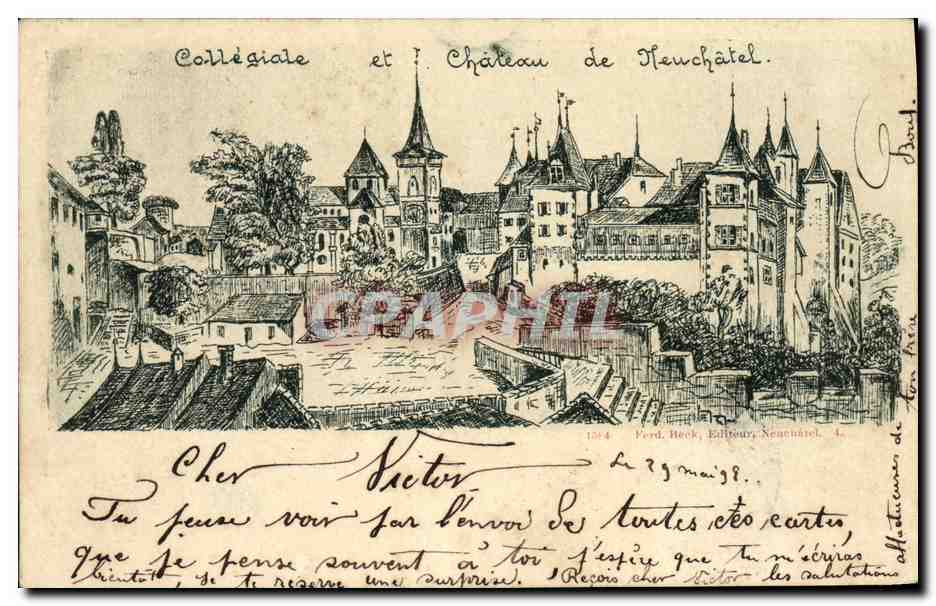 Collégiale et Château de Neuchâtel.
CPAPHIL
1584 Ferd. Beck, Editeur, Neuchâtel. 4.
Cher Victor
Le 29 mai 98.
Tu peuse voir par l'envoi de toutes ces cartes
que je pense souvent à toi j'espère que tu m'écriras
bientôt, je te reserve une surprise. Reçois cher Victor les salutations
affectueuses de ton frère